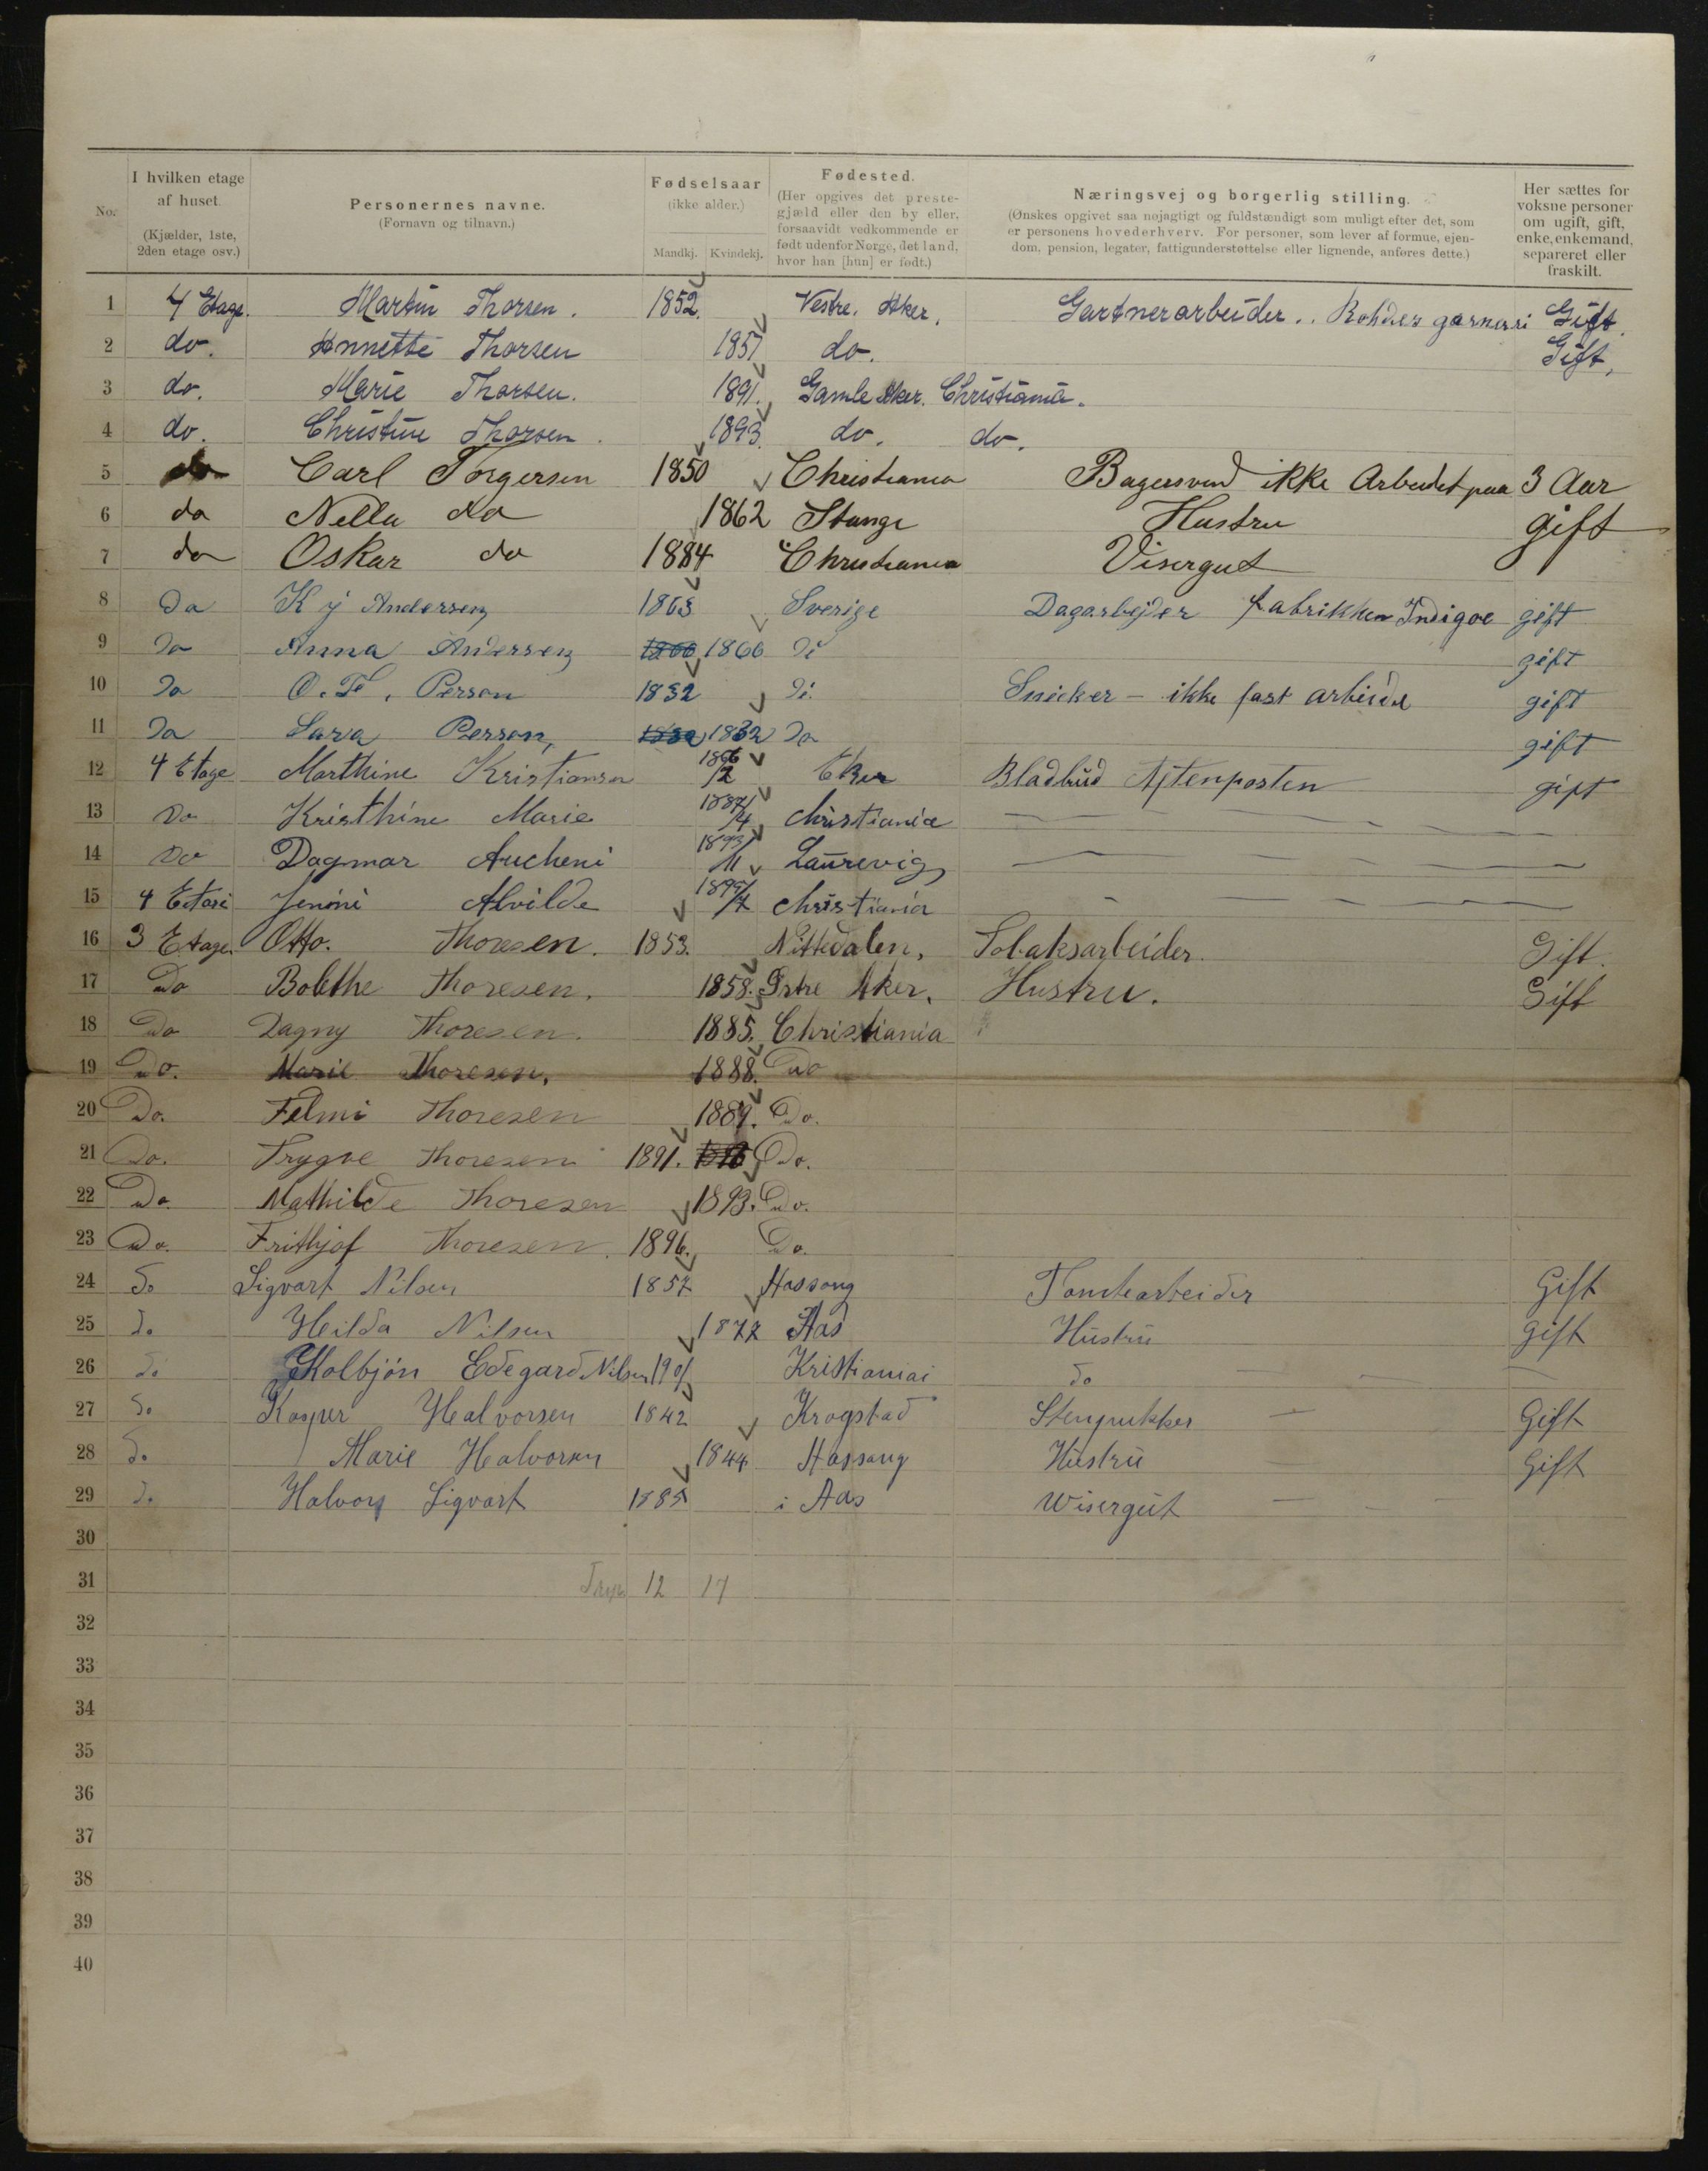 No. I hvilken etage af huset. (Kjælder, 1ste, 2den etage osv.) Personernes navne. (Fornavn og tilnavn.) Fødselsaar (ikke alder.) Mandkj. Kvindekj. Fødested. (Her opgives det prestegjæld eller den by eller, forsaavidt vedkommende er født udenfor Norge, det land, hvor han [hun] er født.) Næringsvej og borgerlig stilling. (Ønskes opgivet saa nøjagtigt og fuldstændigt som muligt efter det, som er personens hovederhverv. For personer, som lever af formue, ejendom, pension, legater, fattigunderstøttelse eller lignende, anføres dette.) Her sættes for voksne personer om ugift, gift, enke, enkemand, separeret eller fraskilt.
1 4 Etage. Martin Thorsen. 1852. Vestre. Aker. Gartnerarbeider.. Rohdes Gift.
2 do. Annette Thorsen 1851 do. Gift,
3 do. Marie Thorsen. 1891. Gamle Aker. Christiania.
4 do. Christine Thorsen. 1893. do. do.
5 do Carl Torgersen 1850 Christiania Bagersvend ikke Arbeidet paa 3 Aar
6 do Nella do 1862 Stange Hustru gift
7 do Oskar do 1884 Christiania Visergut
8 Do K j Andersen 1863 Sverige Dagarbejder fabrikken Indigoe gift
9 Do Anna Andersen 1866 1866 Do gift
10 Do Person 1832 Do Snicker - ikke fast arbeide gift
11 Do Sara Person, 1832 1832 Do gift
12 4 Etage Marthine Kristiansen 1866/2 Eker Bladbud Aftenposten gift
13 Do Kristhine Marie 1887/4 Christiania
14 Do Dagmar 1893/11 Laurevig
15 4 Etasi Jenini Alvilde Christiania
16 3 Etage. Otto. Thoresen. 1853. Nittedalen. Tobaksarbeider. Gift.
17 Do Bolethe Thoresen. 1858. Østre Aker. Hustru. Gift
18 Do Dagny Thoresen. 1885. Christiania
19 Do. Marie Thoresen. 1888. Do
20 Do. Thoresen 1889. Do.
21 Do. Trygve Thoresen 1891. Do.
22 Do. Mathilde Thoresen 1893. Do.
23 Do. Frithjof Thoresen. 1896. Do.
24 Do Sigvart Nilsen 1857 Tomtearbeider Gift
25 do Hilda Nilsen 1872 Aas Hustru gift
26 do Kolbjön Edegard Nilsen 1901 Kristianiai do
27 Do Kasper Halvorsen 1842 Krogstad Stenpukker Gift
28 do Marie Halvorsen 1844 Hustru Gift
29 do Halvor Sigvart 1885 i Aas Wisergut
30
31 12 17
32
33
34
35
36
37
38
39
40